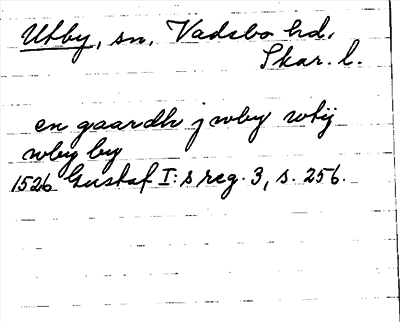 Utby, sn, Vadsbo hd,
Skar. l.
en gaardh j wby wtij
wby by
1526 Gustaf I:s reg. 3, s. 256.